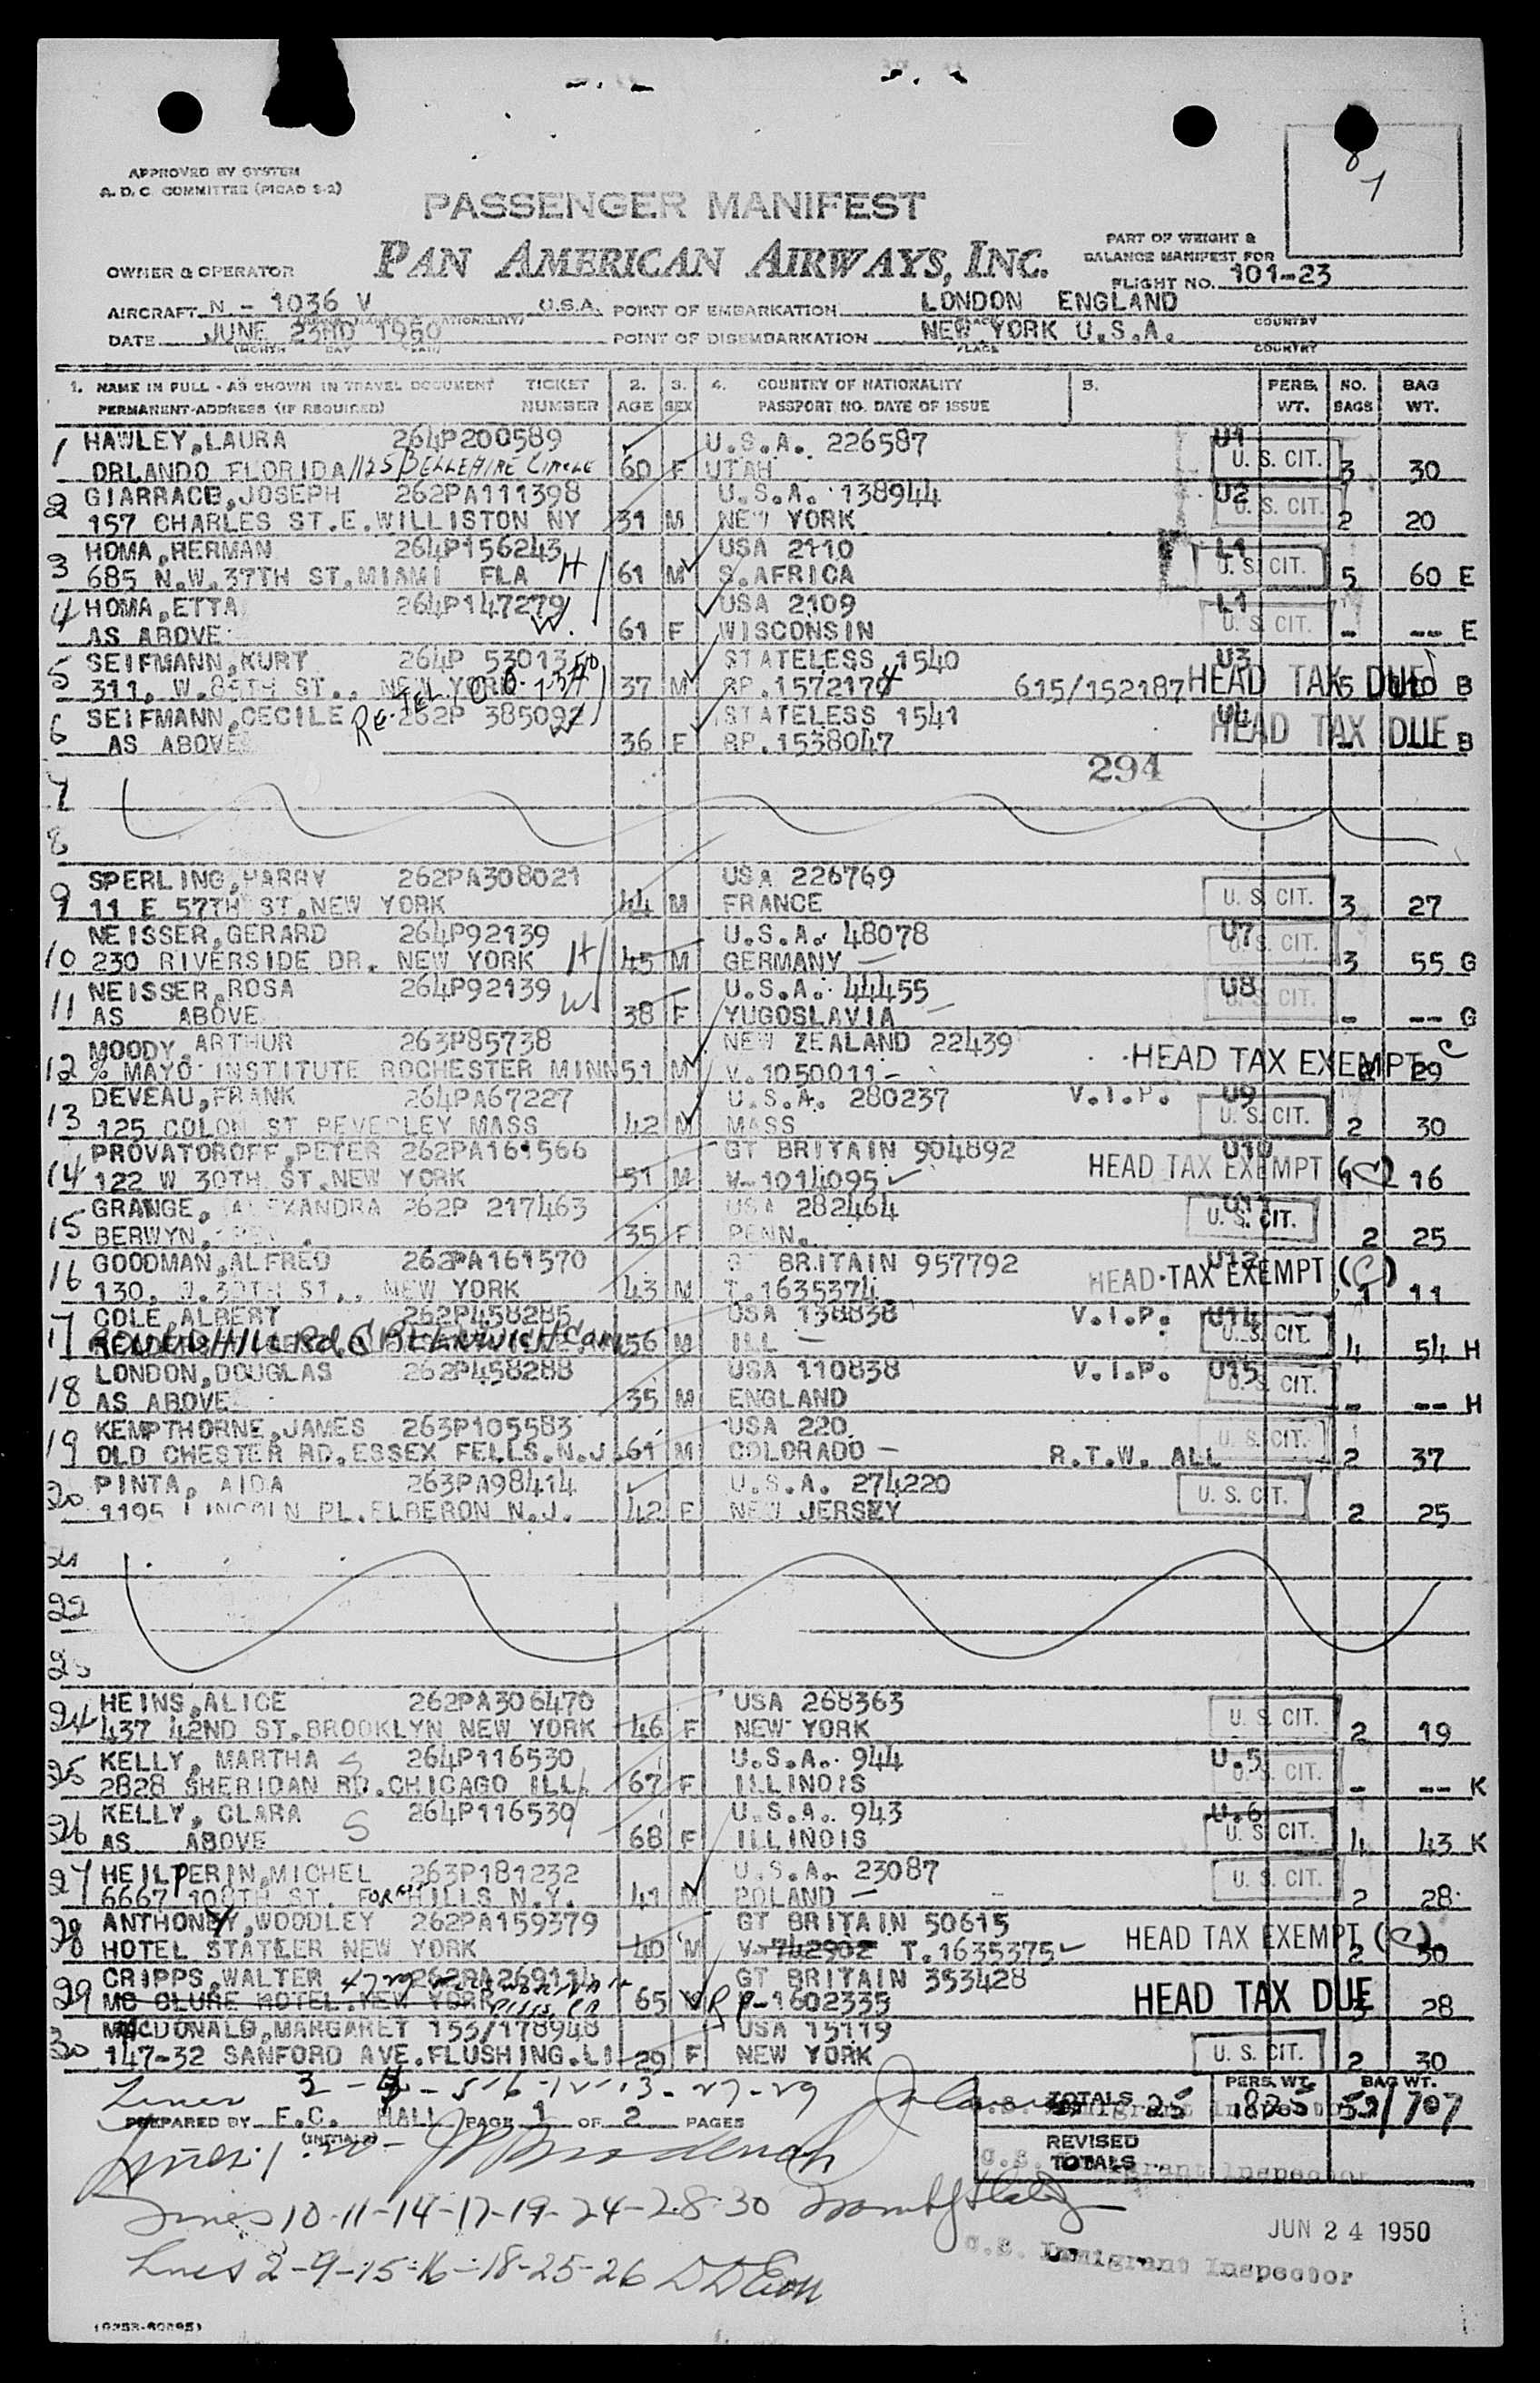 APPROVED BY SYSTEM
A. D. C. COMMITTEE (PICAO S-2)
PASSENGER MANIFEST
PAN AMERICAN AIRWAYS, INC.
PART OF WEIGHT &
BALANCE MANIFEST FOR
FLIGHT NO. 101-23
OWNER & OPERATOR
AIRCRAFT N - 1036 V U.S.A. POINT OF EMBARKATION LONDON ENGLAND
DATE JUNE 23RD 1950 POINT OF DISEMBARKATION NEW YORK U.S.A.
(MONTH DAY YEAR) PLACE COUNTRY
1. NAME IN FULL - AS SHOWN IN TRAVEL DOCUMENT TICKET 2. 3. 4. COUNTRY OF NATIONALITY 5. PERS. NO. BAG
PERMANENT-ADDRESS (IF REQUIRED) NUMBER AGE SEX PASSPORT NO. DATE OF ISSUE WT. BAGS WT.
1 HAWLEY,LAURA 264P200589 U.S.A. 226587 U1
ORLANDO FLORIDA 1125 BELLEAIRE CIRCLE 60 F UTAH U. S. CIT. 3 30
2 GIARRACE,JOSEPH 262PA111398 U.S.A. 138944 U2
157 CHARLES ST.E.WILLISTON NY 31 M NEW YORK U. S. CIT. 2 20
3 HOMA,HERMAN 264P156243 USA 2110 L1
685 N.W.37TH ST.MIAMI FLA H 61 M S.AFRICA U. S. CIT. 5 60 E
4 HOMA,ETTA 264P147279 USA 2109 L1
AS ABOVE W. 61 F WISCONSIN U. S. CIT. - -- E
5 SEIFMANN,KURT 264P 53013 STATELESS 1540 U3
311, W.85TH ST., NEW YORK H 37 M RP.1572174 615/152187 HEAD TAX DUE 5 B
6 SEIFMANN,CECILE 262P 385092 STATELESS 1541 U4
AS ABOVE W 36 F RP.1538047 HEAD TAX DUE B
294
7
8
9 SPERLING,HARRY 262PA308021 USA 226769
11 E 57TH ST.NEW YORK 44 M FRANCE U. S. CIT. 3 27
10 NEISSER,GERARD 264P92139 U.S.A. 48078 U7
230 RIVERSIDE DR. NEW YORK H 45 M GERMANY U. S. CIT. 3 55 G
11 NEISSER,ROSA 264P92139 U.S.A. 44455 U8
AS ABOVE W 38 F YUGOSLAVIA U. S. CIT. - -- G
12 MOODY,ARTHUR 263P85738 NEW ZEALAND 22439
% MAYO INSTITUTE ROCHESTER MINN 51 M V.1050011- HEAD TAX EXEMPT C 29
13 DEVEAU,FRANK 264PA67227 U.S.A. 280237 V.I.P. U9
125 COLON ST BEVERLEY MASS 42 M MASS U. S. CIT. 2 30
14 PROVATOROFF,PETER 262PA161566 GT BRITAIN 904892 U10
122 W 30TH ST.NEW YORK 51 M V-1014095 HEAD TAX EXEMPT (C) 16
15 GRANGE, ALEXANDRA 262P 217463 USA 282464 U11
BERWYN, 35 F PENN. U. S. CIT. 2 25
16 GOODMAN,ALFRED 262PA161570 G BRITAIN 957792 U12
130, W.30TH ST., NEW YORK 43 M T.1635374 HEAD TAX EXEMPT (C) 1 11
17 COLE,ALBERT 262P458285 USA 138838 V.I.P. U14
ROUND HILL Rd GREENWICH Conn 56 M ILL U. S. CIT. 4 54 H
18 LONDON,DOUGLAS 262P458288 USA 110838 V.I.P. U15
AS ABOVE 35 M ENGLAND U. S. CIT. - -- H
19 KEMPTHORNE,JAMES 263P105583 USA 220
OLD CHESTER RD.ESSEX FELLS.N.J. 61 M COLORADO - R.T.W. ALL U. S. CIT. 2 37
20 PINTA, AIDA 263PA98414 U.S.A. 274220
1195 LINCOLN PL.ELBERON N.J. 42 F NEW JERSEY U. S. CIT. 2 25
21
22
23
24 HEINS,ALICE 262PA306470 USA 268363
437 42ND ST.BROOKLYN NEW YORK 46 F NEW YORK U. S. CIT. 2 19
25 KELLY, MARTHA S 264P116530 U.S.A. 944 U.5
2828 SHERIDAN RD.CHICAGO ILL. 67 F ILLINOIS U. S. CIT. - -- K
26 KELLY, CLARA S 264P116530 U.S.A. 943 U.6
AS ABOVE 68 F ILLINOIS U. S. CIT. 4 43 K
27 HEILPERIN,MICHEL 263P181232 U.S.A. 23087
6667 108TH ST. FOREST HILLS N.Y. 41 M POLAND - U. S. CIT. 2 28
28 ANTHONY,WOODLEY 262PA159379 GT BRITAIN 50615
HOTEL STATLER NEW YORK 40 M V-742902 T.1635375 HEAD TAX EXEMPT (C) 2 30
29 CRIPPS,WALTER 262PA269114 GT BRITAIN 353428
MC CLURE HOTEL.NEW YORK 65 RP-1602335 HEAD TAX DUE 28
30 MACDONALD,MARGARET 153/178948 USA 15119
147-32 SANFORD AVE.FLUSHING.LI 29 F NEW YORK U. S. CIT. 2 30
Lines 3-4-5-6-12-13-27-29
TOTALS 25 PERS. WT. BAG WT. 52/707
PREPARED BY E.C. HALL PAGE 1 OF 2 PAGES
(INITIALS)
REVISED
TOTALS
U.S. Immigrant Inspector
Lines 1-20-
Lines 10-11-14-17-19-24-28-30
JUN 24 1950
U.S. Immigrant Inspector
Lines 2-9-15-16-18-25-26